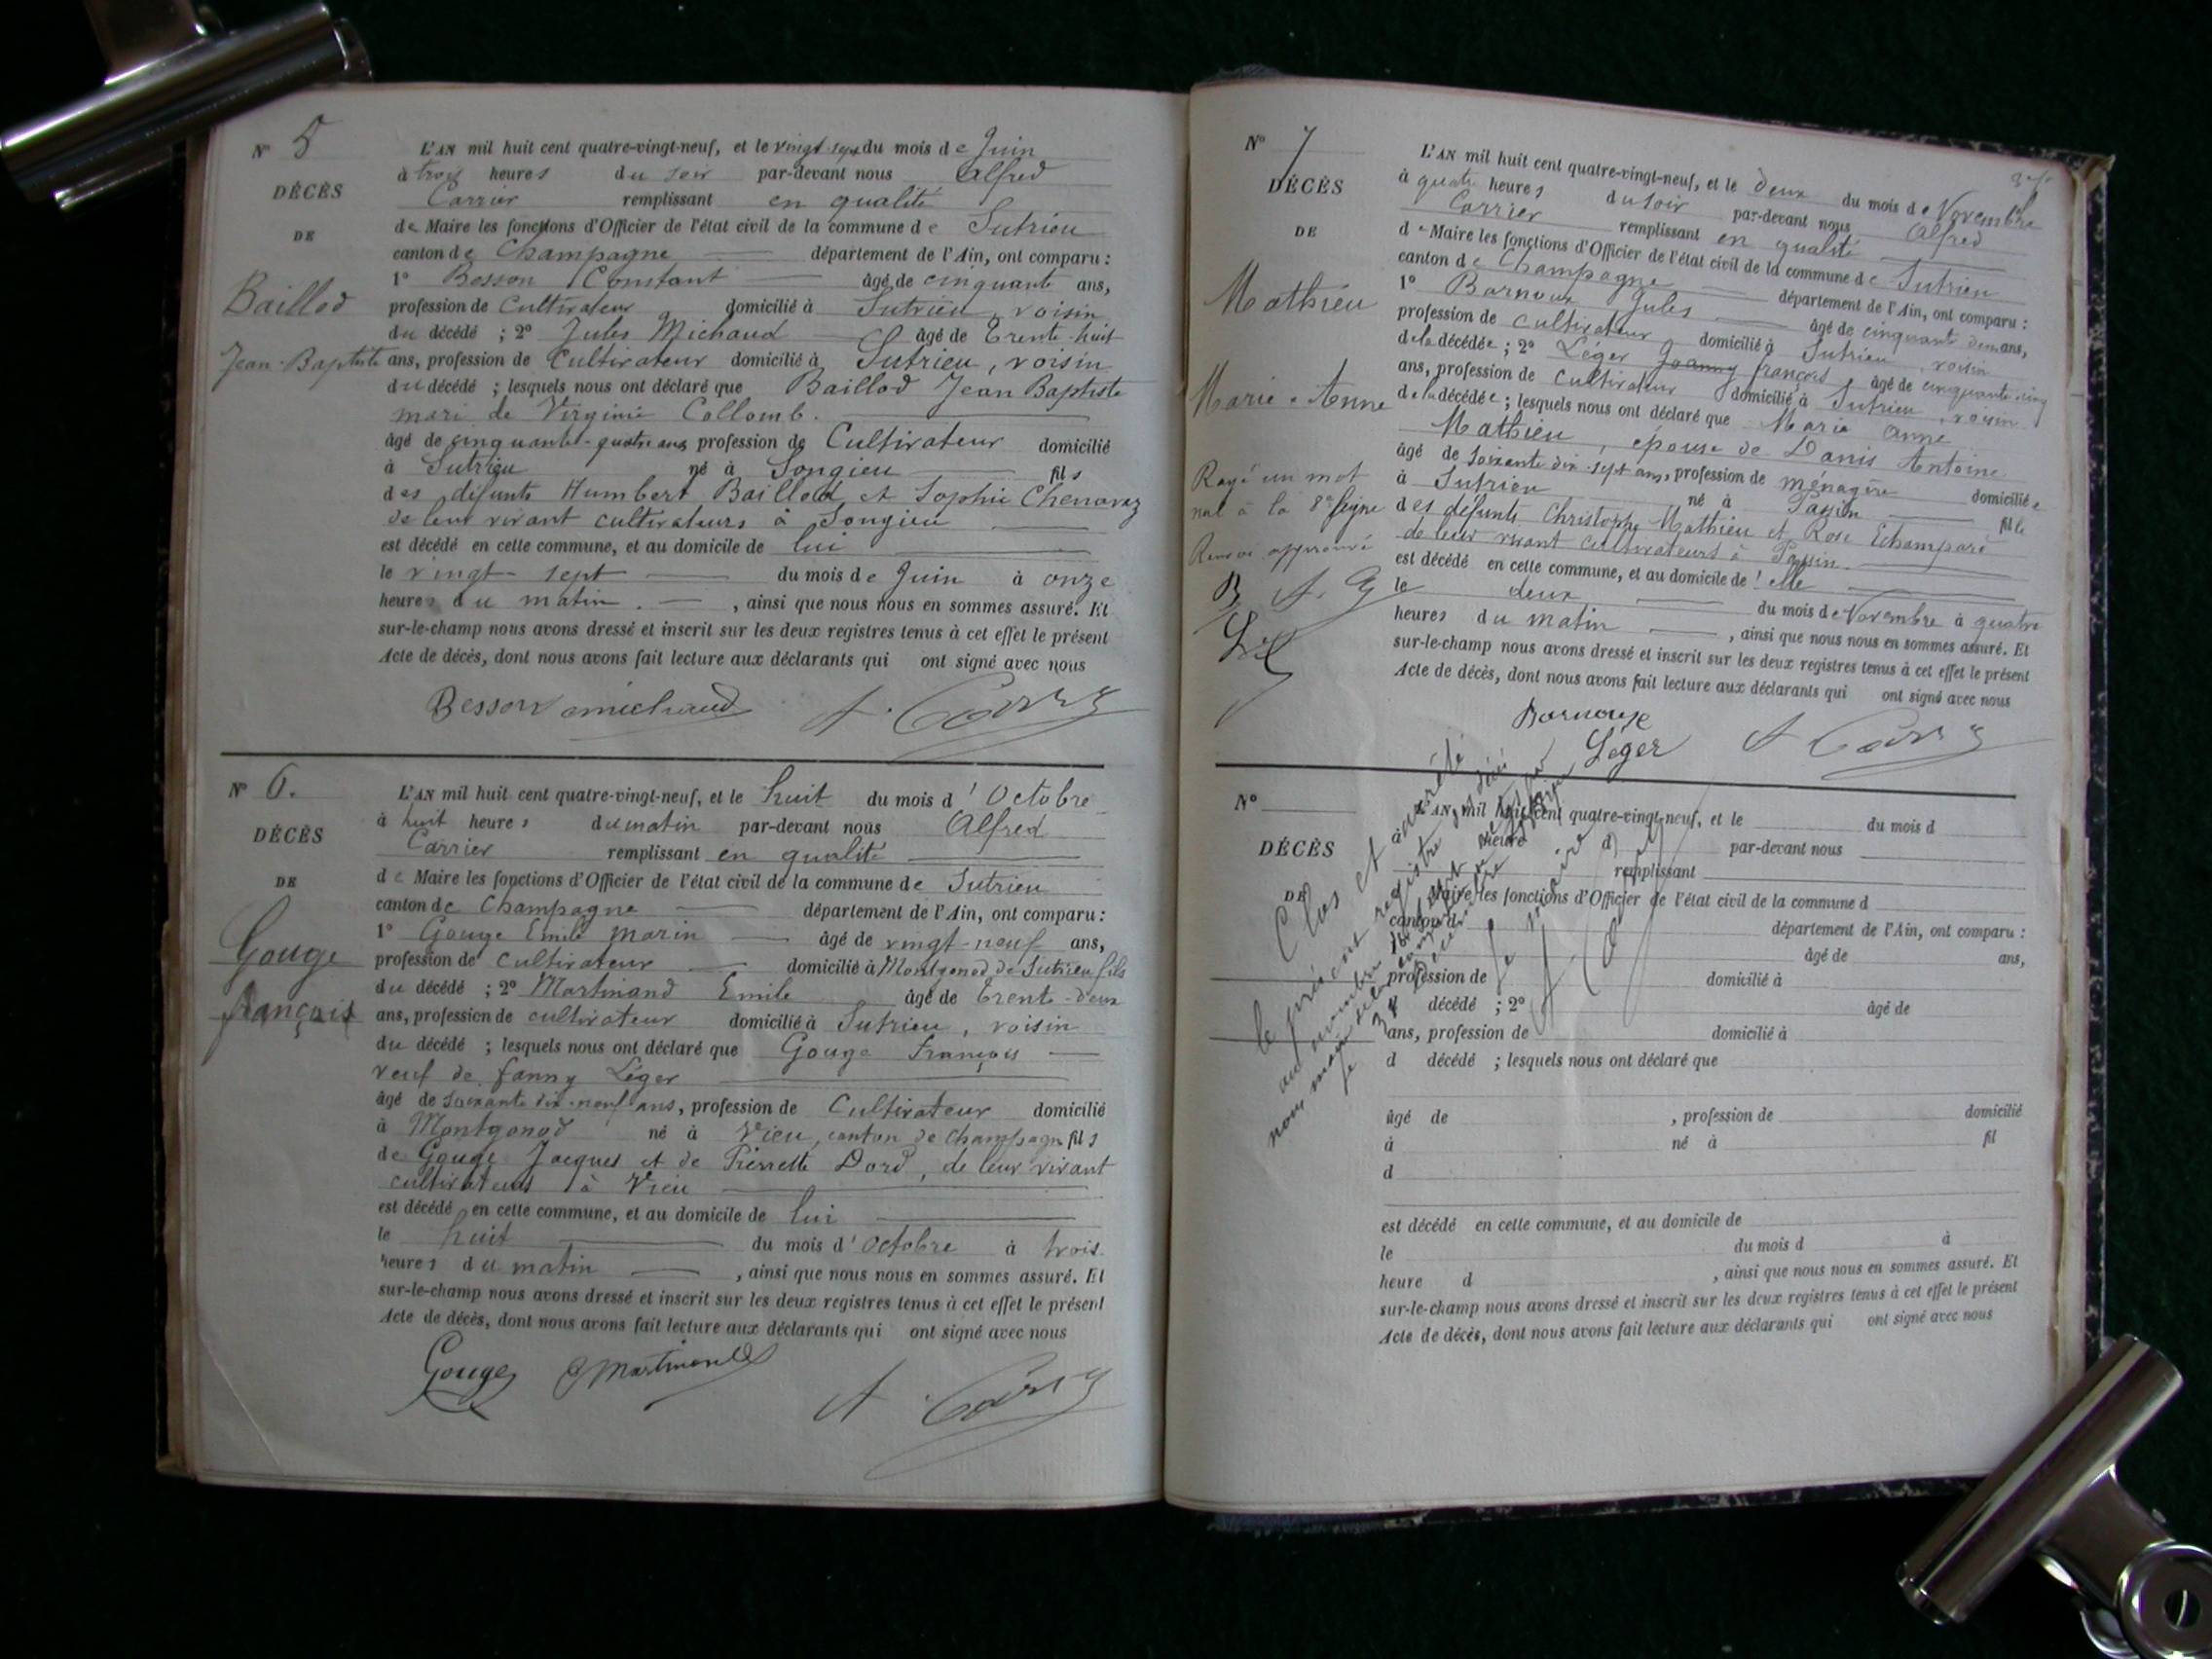 N° 5
DÉCÈS
DE
Baillod
Jean-Baptiste
L'AN mil huit cent quatre-vingt-neuf, et le vingt-sept du mois de Juin
à trois heures du soir par-devant nous Alfred
Carrier remplissant en qualité
de Maire les fonctions d'Officier de l'état civil de la commune de Sutrieu
canton de Champagne département de l'Ain, ont comparu :
1° Besson Constant âgé de cinquante ans,
profession de Cultivateur domicilié à Sutrieu, voisin
du décédé ; 2° Jules Michaud âgé de Trente-huit
ans, profession de Cultivateur domicilié à Sutrieu, voisin
du décédé ; lesquels nous ont déclaré que Baillod Jean Baptiste
mari de Virginie Collomb.
âgé de cinquante-quatre ans, profession de Cultivateur domicilié
à Sutrieu né à Songieu fils
des défunts Humbert Baillod et Sophie Chenavaz
de leur vivant cultivateurs à Songieu
est décédé en cette commune, et au domicile de lui
le vingt-sept du mois de Juin à onze
heures du matin. , ainsi que nous nous en sommes assuré. Et
sur-le-champ nous avons dressé et inscrit sur les deux registres tenus à cet effet le présent
Acte de décès, dont nous avons fait lecture aux déclarants qui ont signé avec nous
Besson Michaud A. Carrier
N° 6.
DÉCÈS
DE
Gouge
françois
L'AN mil huit cent quatre-vingt-neuf, et le huit du mois d'Octobre
à huit heures du matin par-devant nous Alfred
Carrier remplissant en qualité
de Maire les fonctions d'Officier de l'état civil de la commune de Sutrieu
canton de Champagne département de l'Ain, ont comparu :
1° Gouge Emile Marin âgé de vingt-neuf ans,
profession de cultivateur domicilié à Montgonod de Sutrieu fils
du décédé ; 2° Martinand Emile âgé de Trente-deux
ans, profession de cultivateur domicilié à Sutrieu, voisin
du décédé ; lesquels nous ont déclaré que Gouge François
veuf de fanny Léger
âgé de soixante dix-neuf ans, profession de Cultivateur domicilié
à Montgonod né à Vieu, canton de Champagne fils
de Gouge Jacques et de Pierrette Dord, de leur vivant
cultivateurs à Vieu
est décédé en cette commune, et au domicile de lui
le huit du mois d'octobre à trois
heures du matin , ainsi que nous nous en sommes assuré. Et
sur-le-champ nous avons dressé et inscrit sur les deux registres tenus à cet effet le présent
Acte de décès, dont nous avons fait lecture aux déclarants qui ont signé avec nous
Gouge E Martinand A. Carrier
N° 7
DÉCÈS
DE
Mathieu
Marie-Anne
Rayé un mot
nul à la 8e ligne
Renvoi approuvé
L'AN mil huit cent quatre-vingt-neuf, et le deux du mois de Novembre
à quatre heures du soir par-devant nous Alfred
Carrier remplissant en qualité
de Maire les fonctions d'Officier de l'état civil de la commune de Sutrieu
canton de Champagne département de l'Ain, ont comparu :
1° Barnoux Jules âgé de cinquante deux ans,
profession de cultivateur domicilié à Sutrieu, voisin
de la décédée ; 2° Léger Joanny françois, âgé de cinquante-cinq
ans, profession de cultivateur domicilié à Sutrieu, voisin
de la décédée ; lesquels nous ont déclaré que Marie Anne
Mathieu, épouse de Danis Antoine
âgé de soixante dix-sept ans, profession de ménagère domiciliée
à Sutrieu né à Passin fille
des défunts Christophe Mathieu et Rose Echamparé
de leur vivant cultivateurs à Passin
est décédé en cette commune, et au domicile d'elle
le deux du mois de Novembre à quatre
heures du matin , ainsi que nous nous en sommes assuré. Et
sur-le-champ nous avons dressé et inscrit sur les deux registres tenus à cet effet le présent
Acte de décès, dont nous avons fait lecture aux déclarants qui ont signé avec nous
Barnoux
Léger A Carrier
N°
DÉCÈS
DE
L'AN mil huit cent quatre-vingt-neuf, et le du mois d
à heure d par-devant nous
remplissant
Maire les fonctions d'Officier de l'état civil de la commune d
canton d département de l'Ain, ont comparu :
âgé de ans,
profession de domicilié à
décédé ; 2° âgé de
ans, profession de domicilié à
d décédé ; lesquels nous ont déclaré que
âgé de , profession de domicilié
à né à fil
d
est décédé en cette commune, et au domicile de
le du mois d à
heure d , ainsi que nous nous en sommes assuré. Et
sur-le-champ nous avons dressé et inscrit sur les deux registres tenus à cet effet le présent
Acte de décès, dont nous avons fait lecture aux déclarants qui ont signé avec nous
Clos et arrêté
le présent registre
nous maire de la
le Maire